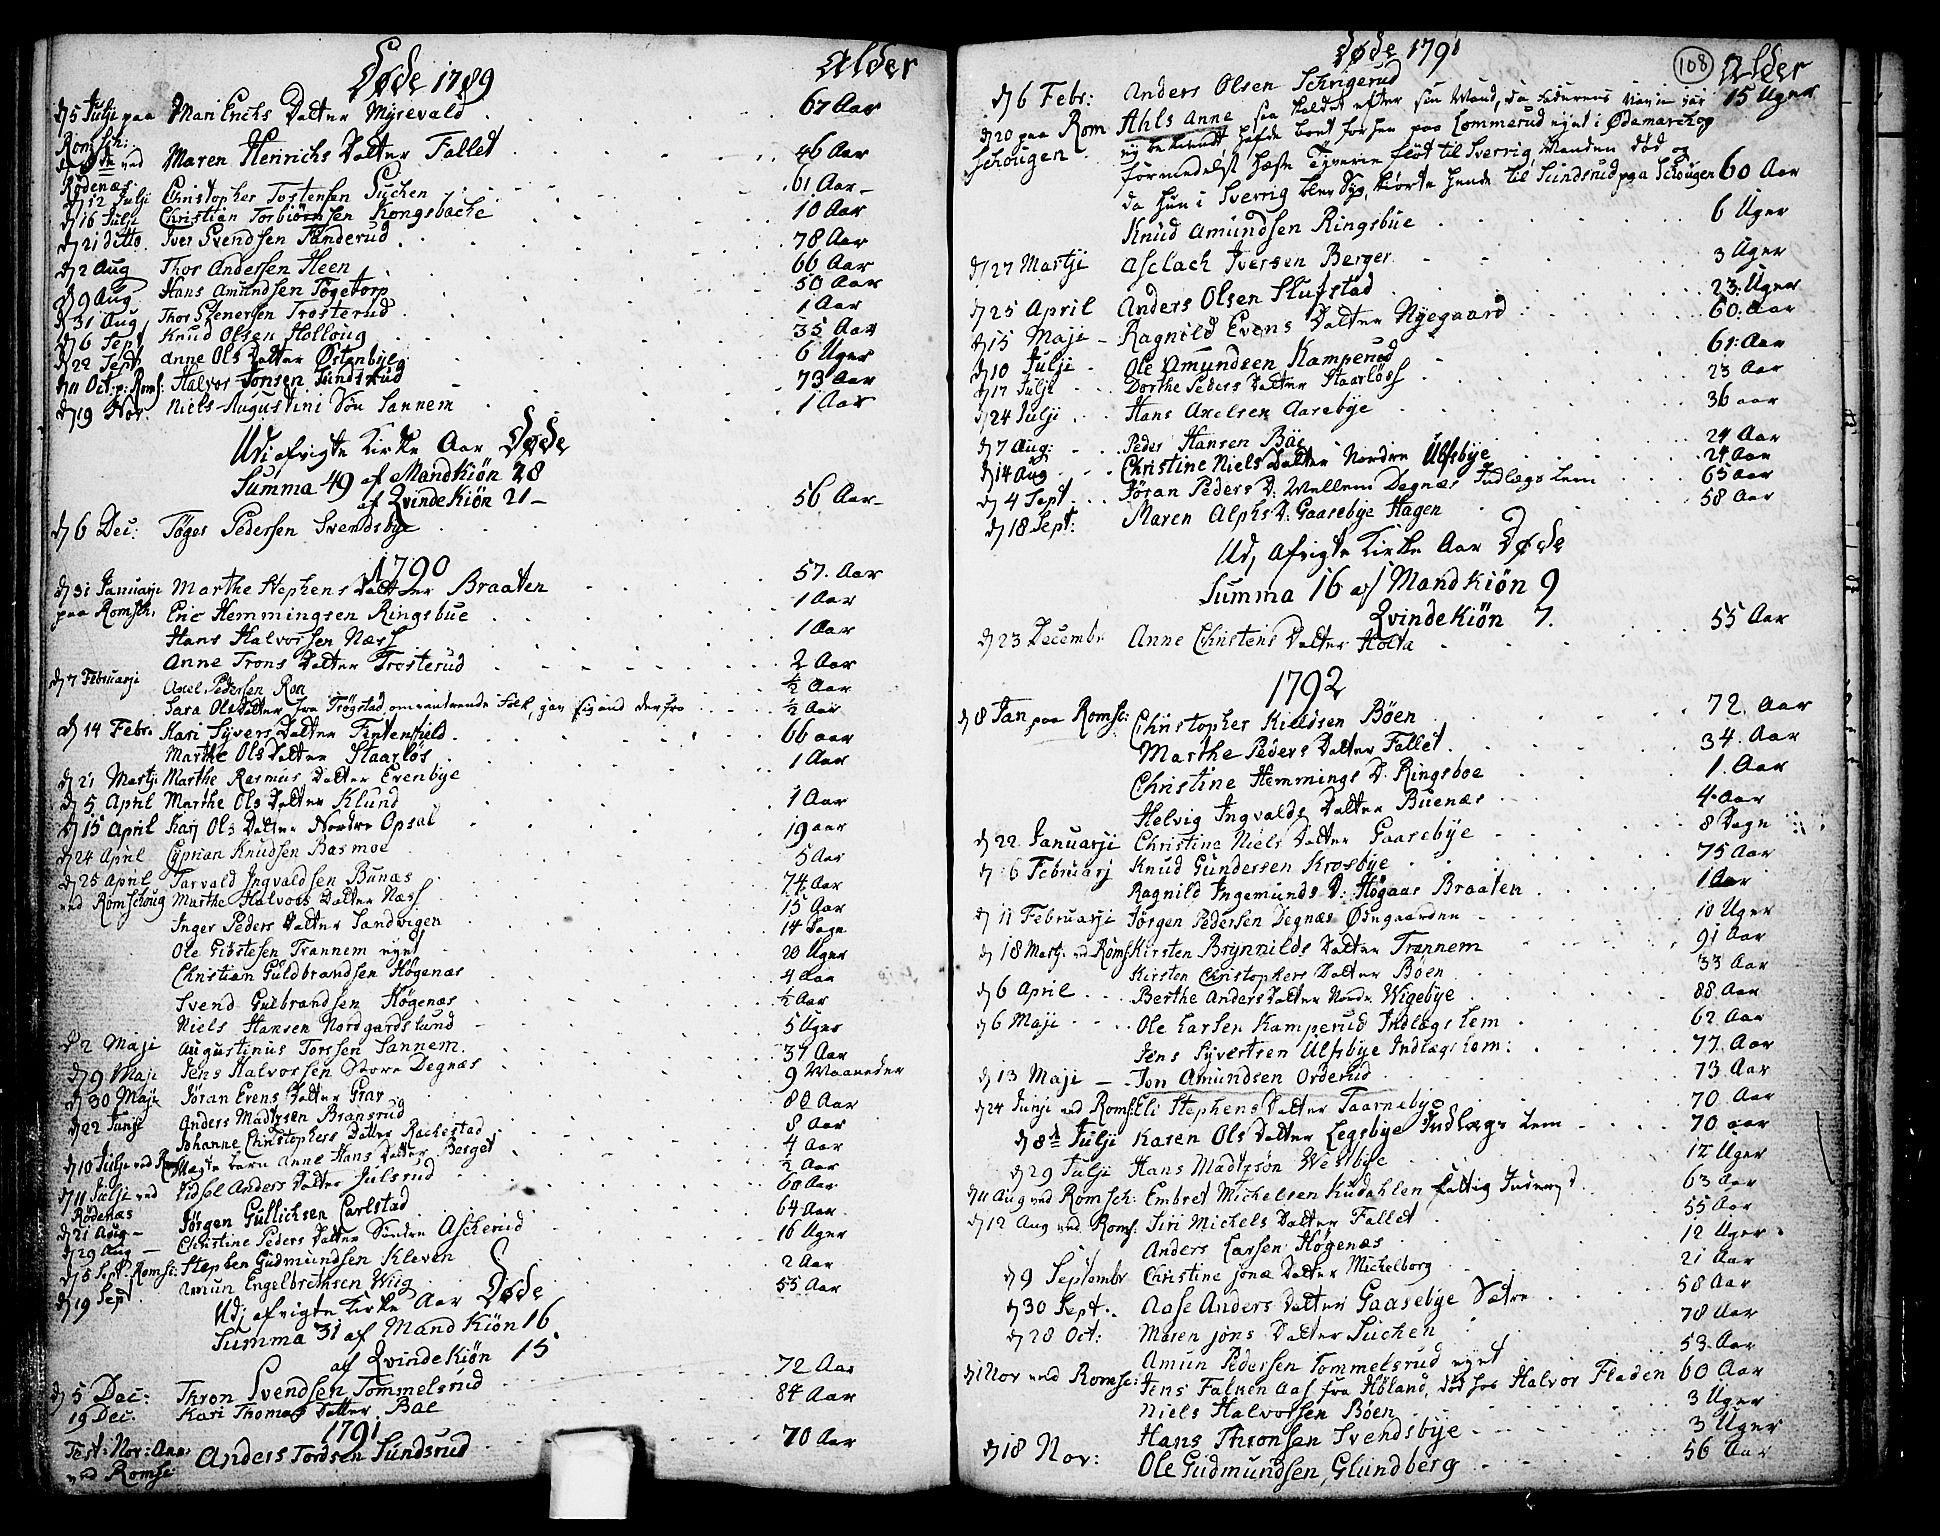 Døde 1789 Alder
d 5 Julji paa Mari Erichs Datter Myrevald 67 Aar
Romsch:
ved Maren Henrichs Datter Fallet 46 Aar
Rødenæs:
d 12 Julji Christopher Tostensen Suchen 61 Aar
d 16 Julji Christian Torbiørnsen Kongsbache 10 Aar
d 21 ditto Iver Svendsen Tanderud 78 Aar
d 2 Aug Thor Andersen Heen 66 Aar
d 9 Aug Hans Amundsen Togetorp 50 Aar
d 31 Aug Thor Stenersen Trosterud 1 Aar
d 6 Sept Knud Olsen Holloug 35 Aar
d 22 Sept Anne Ols Datter Østenbye 6 Uger
d 11 Oct. p: Roms: Halvor Jonsen Sundsrud 73 Aar
d 19 Nov. Niels Augustini Søn Sannem 1 Aar
Udi afvigte Kirke Aar Døde
Summa 49 af Mandkiøn 28
af Qvindekiøn 21
d 6 Dec: Tøger Pedersen Svendsbye 56 Aar
1790
d 31 Januarji Marthe Stephens Datter Braaten 57. Aar
paa Romsch: Eric Hemmingsen Ringsbue 1 Aar
Hans Halvorsen Næss 1 Aar
Anne Trons Datter Trosterud 2 Aar
d 7 Februarji Axel Pedersen Ron ½ Aar
Sara Ols Datter fra Trøgstad omvandrende Folk, gav sig ind derfra ½ Aar
d 14 Febr. Kari Syvers Datter Tintenfield 66 aar
Marthe Ols Datter Staarløs 1 Aar
d 21 Martji Marthe Rasmus Datter Evenbye
d 5 April Marthe Ols Datter Klund 1 Aar
d 15 April Karj Ols Datter Nordre Opsal 19 aar
d 24 April Cyprian Knudsen Basmoe 5 Aar
d 25 April Tarvald Ingvaldsen Bunæs 74 Aar
ved Romschoug Marthe Halvors Datter Næss 15 Aar
Inger Peders Datter Sandvigen 14 Dage
Ole Trannem 20 Uger
Christian Guldbrandsen Høgenæs 4 Aar
Svend Gulbrandsen Høgenæs ½ Aar
Niels Hansen Nordgardslund 5 Uger
d 2 Maji Augustinus Torssen Sannem 37 Aar
d 9 Maji Jens Halvorsen Store Degnæs 9 Maaneder
d 30 Maji Jøran Evens Datter Grav 80 Aar
d 22 Junji Anders Madtzsen Bransrud 8 Aar
Johanne Christophers Datter Rachestad 4 Aar
d 10 Julji ved Roms Anne Hans Datter Berget ½ Aar
d 11 Julji ved Sidsel Anders Datter Julsrud 60 Aar
Rødenæs Jørgen Gullichsen Carlstad 64 Aar
d 21 Aug Christine Peders Datter Søndre Ascherud 16 Uger
d 29 Aug
d 5 Sept. Romsc: Stephen Gudmundsen Kleven 2 Aar
d 19 Sept Amun Engelbrechsen Wiig 55 Aar
Udj afvigte Kirke Aar Døde
Summa 31 af Mandkiøn 16
af Qvindekiøn 15
d 5 Dec: Thron Svendsen Tommelsrud 72 Aar
19 Dec. Kari Thomas Datter Bae 84 Aar
1791
Fest: Nov: Ann: Anders Tordsen Sundsrud 70 Aar
ved Romsc
Døde 1791 108 Alder
d 6 Febr: Anders Olsen Schrigerud 15 Uger
d 20 paa Rom Ahls Anne saa kaldet efter sin Mand, da Faderens Navn var
Schougen ej bekendt hafde boet forhen paa Lommerud i Ødemarchen
formedelst hæste Tyverie flød til Sverrig, Manden død og
da hun i Sverrig blev Syg, kiørte hende til Sundsrud paa Schougen 60 Aar
Knud Amundsen Ringsbue 6 Uger
d 27 Martji Aslach Iversen Berger 3 Uger
d 25 April Anders Olsen Slufstad 23 Uger
d 15 Maji Ragnild Evens Datter Nyegaard 60 Aar
d 10 Julji Ole Amundsen Kamperud 61 Aar
d 17 Julji Dorthe Peders Datter Staarløss 23 Aar
d 24 Julji Hans Axelsen Aasebye 36 aar
d 7 Aug: Peder Hansen Bae 24 Aar
d 14 Aug Christine Niels Datter Nordre Ulfsbye 24 Aar
d 4 Sept. Jøran Peders D: Mellem Degnæs Indlægs Lem 65 aar
d 18 Sept: Maren Alphs D. Gaasebye Hagen 58 Aar
Udj afvigte Kirke Aar Døde
Summa 16 af Mandkiøn 9
Qvindekiøn 7.
d 23 Decembr Anne Christens Datter Holta 55 Aar
1792
d 8 Jan paa Romsc: Christopher Kieldsen Bøen 72. Aar
Marthe Peders Datter Fallet 34. Aar
Christine Hemmings D. Ringsboe 1. Aar
Helvig Ingvalds Datter Buenæs 4 Aar
d 22 Januarji Christine Niels Datter Gaasebye 8 Dage
d 6 Februarj Knud Gundersen Krosbye 75 Aar
Ragnild Ingemunds D: Høgaas Braaten 1 Aar
d 11 Februarji Jørgen Pedersen Degnæs Ødegaarden 10 Uger
d 18 Martj. ved Roms Kirsten Brynnilds Datter Trannem 91 Aar
Kirsten Christophers Datter Bøen 33 Aar
d 6 April Berthe Anders Datter Nordr Wigebye 88 Aar
d 6 Maji Ole Larsen Kamperud Indlægs Lem 62 Aar
Jens Syvertsen Ulfsbye Indlægs Lem: 77. Aar
d 13 Maji Jon Amundsen Orderud 73 Aar
d 24 Junji ved Roms: Eli Stephens Datter Taarnebye 70 Aar
d 8de Julji Karen Ols Datter Legsbye Indlægs Lem 70 aar
d 29 Julji Hans Madtzsøn Westbye 12 Uger
d 11 Aug ved Romsch: Embret Michelsen Kudahlen fattig Inderst 63 Aar
d 12 Aug ved Roms: Siri Michels Datter Fallet 55 Aar
Anders Larsen Høgenæs 12 Uger
d 9 Septembr Christine Jona Datter Michelborg 21 Aar
d 30 Sept. Aase Anders Datter Gaasebye Sætre 58 Aar
d 28 Oct: Maren Jøns Datter Suchen 78 Aar
Amun Pedersen Tommelsrud 53 Aar
d 1 Nov ved Romsc: Jens Falken Aas fra Høland, død hos Halvor Fladen 60 Aar
Niels Halvorsen Bøen 3 Uger
Hans Thronsen Svendsbye 3 Uger
d 18 Nov: Ole Gudmundsen, Glundberg 56 Aar